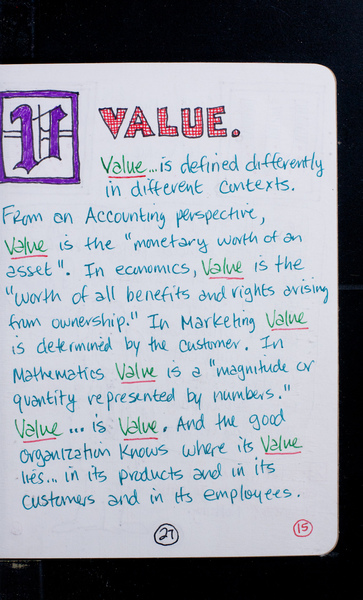 V
VALUE.
Value...is defined differently
in different contexts.
From an Accounting perspective,
Value is the "monetary worth of an
asset". In economics, Value is the
"worth of all benefits and rights arising
from ownership." In Marketing Value
is determined by the customer. In
Mathematics Value is a "magnitude or
quantity represented by numbers."
Value ... is Value. And the good
organization knows where its Value
lies... in its products and in its
customers and in its employees.
27
15